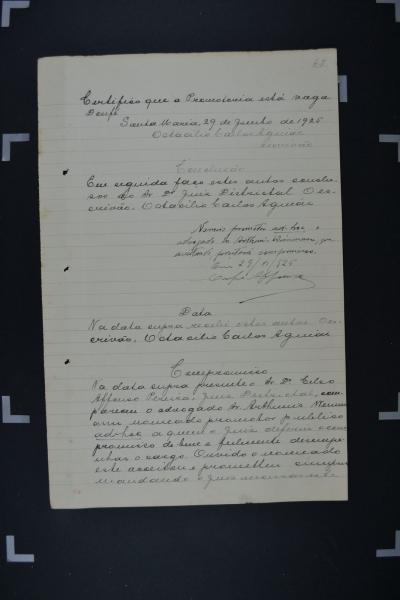 Certifico que a Promotoria está vaga
Doufé
Santa Maria, 29 de Junho de 1925
Octacilio Carlos Aguiar
escrivão
Conclusão
Em seguida faço estes autos conclu-
sos ao Sr. Dr. Juiz Districtal O es-
crivão. Octacilio Carlos Aguiar
Nomeio promotor ad-hoc o
advogado Sr. Arthur
prestará compromisso.
Em 29/6/925
Data
Na data supra recebi estes autos. O es-
crivão. Octacilio Carlos Aguiar
Compromisso
Na data supra presente o Sr. Dr. Celso
Affonso Pereira, Juiz Districtal, com-
pareceu o advogado Sr.
nomeado promotor publico
ad-hoc a quem o Juiz deferiu o com-
promisso de bem e fielmente desempe-
nhar o cargo. Ouvido o nomeado
este acceitou e prometteu
mandando o Juiz